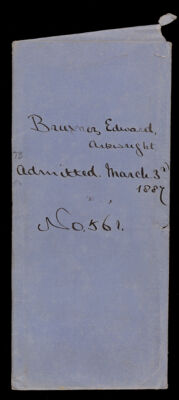 Brurner, Edward,
Arkwright
Admitted. March 3rd
1887
No. 561.